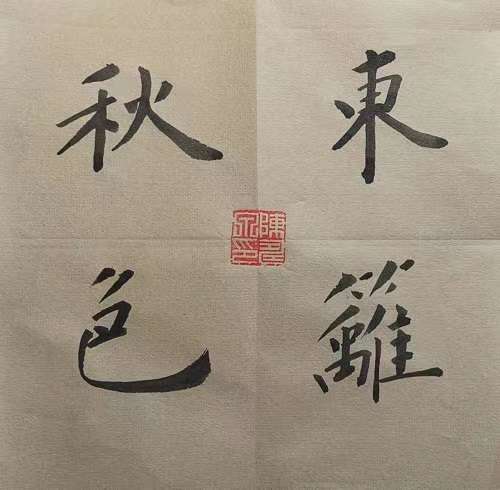 東籬
秋色